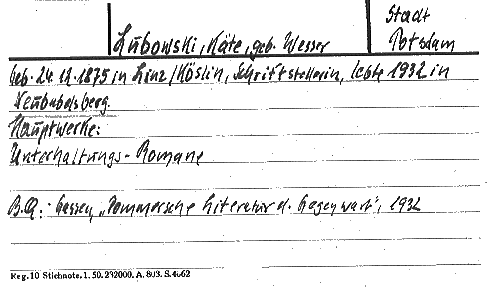 Lubowski, Käte, geb. Wesser
Stadt
Potsdam
geb. 24.12.1875 in Linz/Köslin, Schriftstellerin, lebte 1932 in
Neubabelsberg.
Hauptwerke:
Unterhaltungs-Romane
B.Q.: Gassen, „Pommersche Literatur d. Gegenwart", 1932
Reg. 10 Stichnote. 1. 50. 232000. A. 803. S. 4662